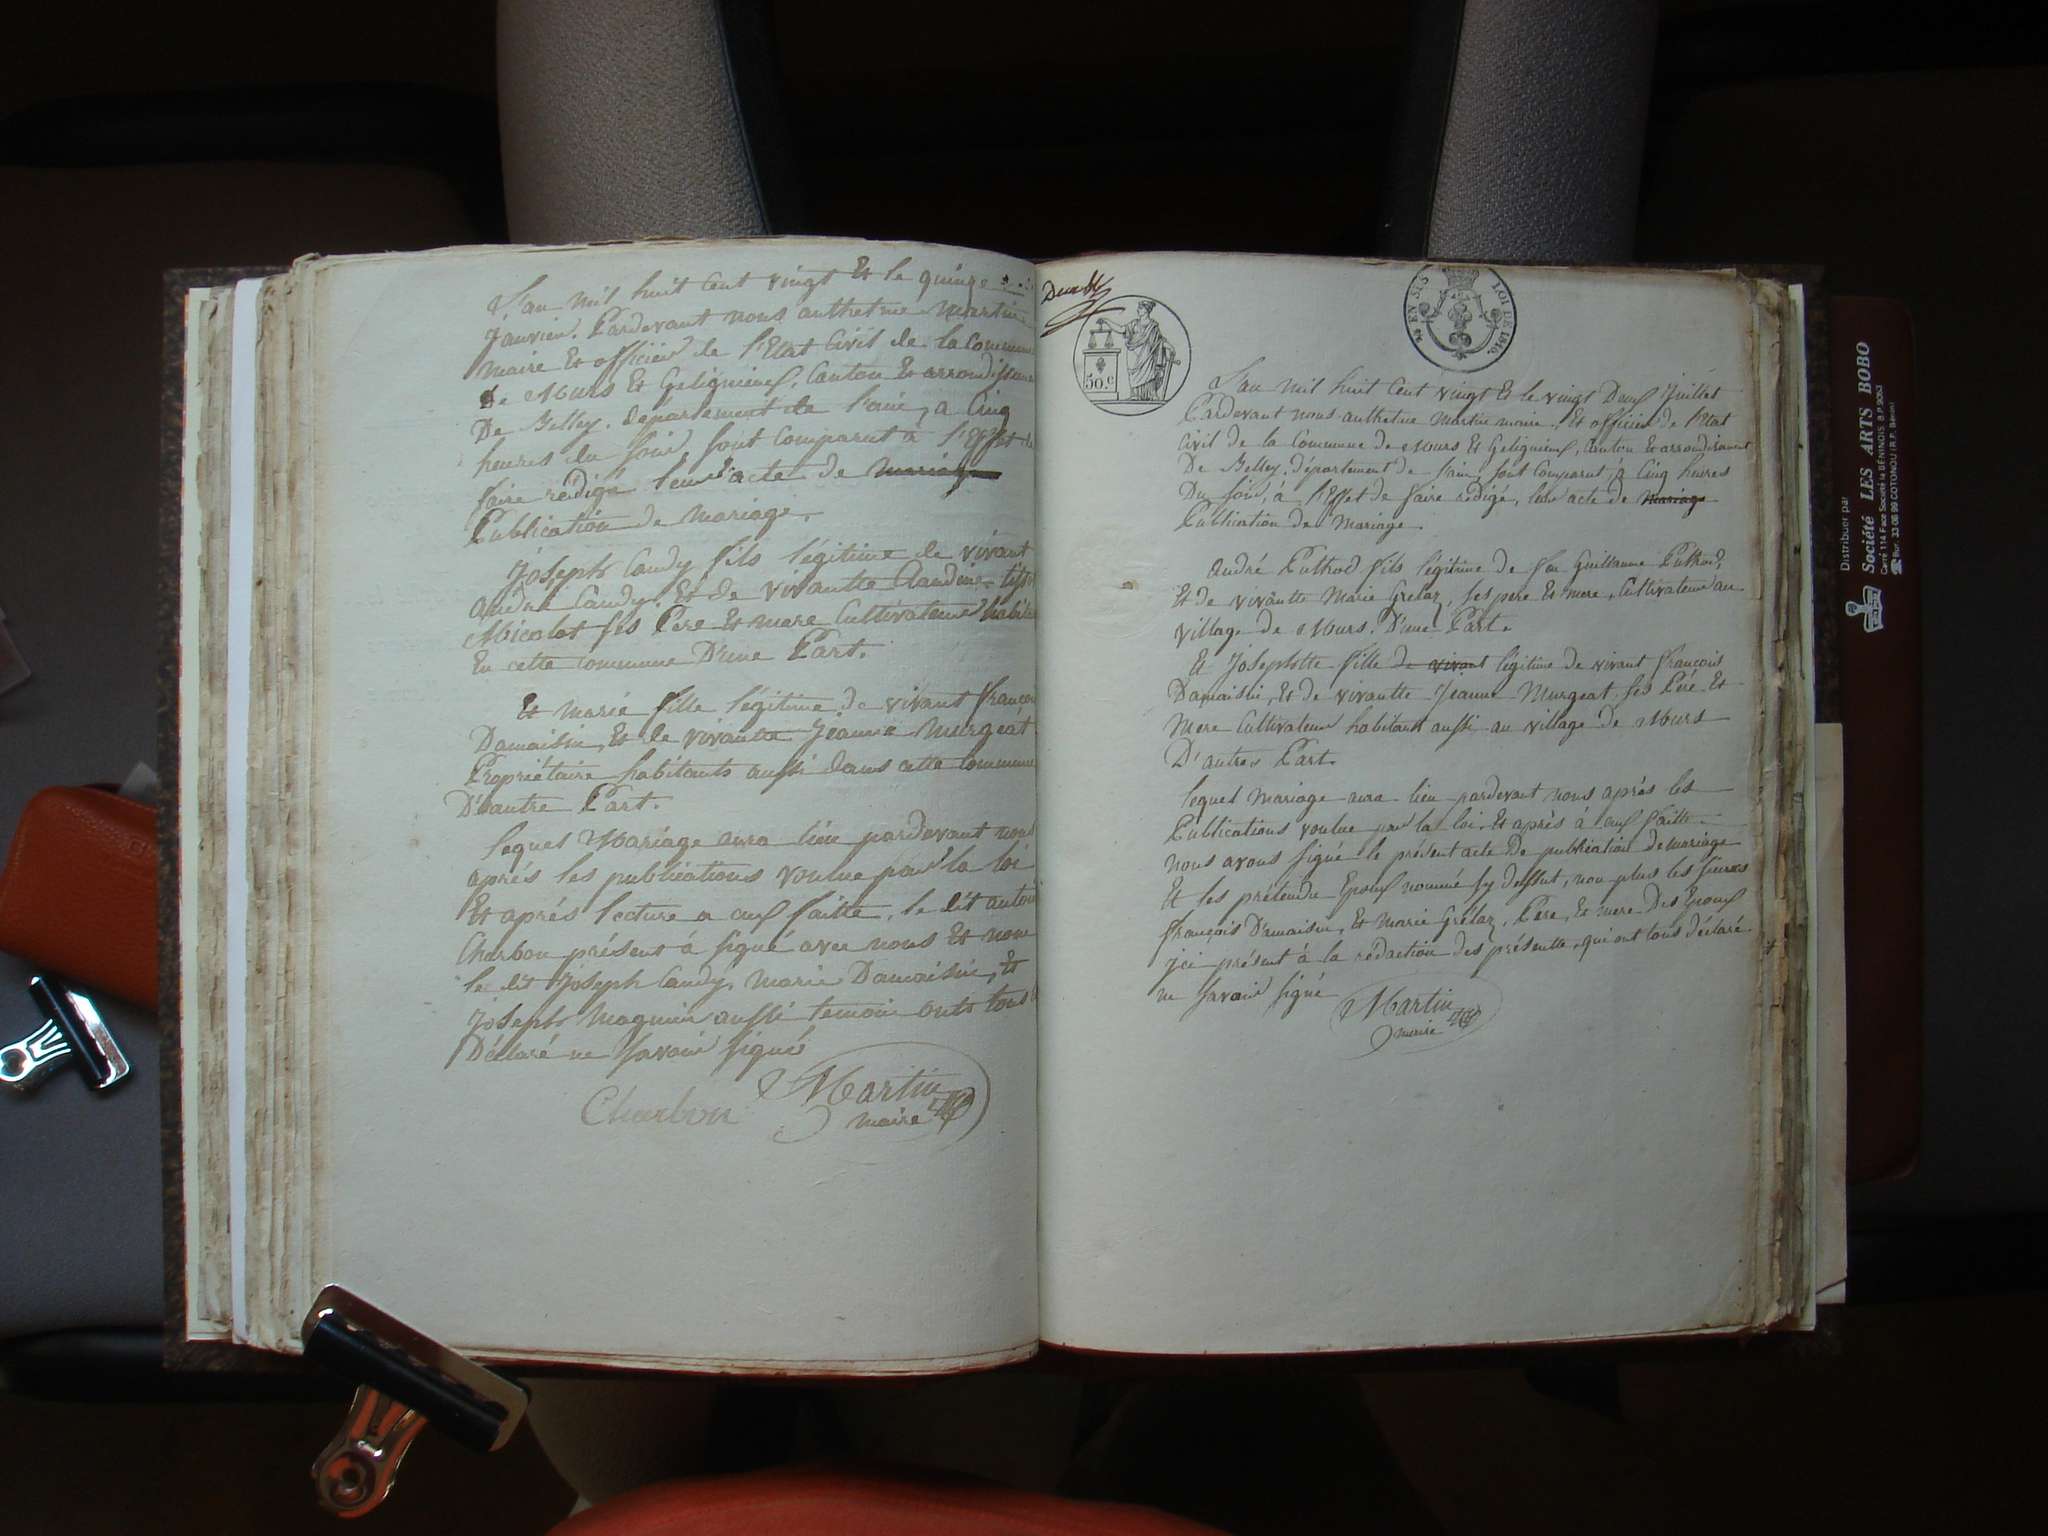 L'an mil huit Cent vingt Et le quinze
Janvier. Pardevant nous anthelme Martin
maire Et officier de l'Etat Civil de la Commune
de Murs Et Gelignieux, Canton Et arrondisseme
De Belley. département de l'ain, a Cinq
heures du soir, sont Comparut a l'Effet de
faire rédigé leur acte de mariage
Publication de mariage.
Joseph Candy fils légitime de vivant
André Candy. Et de vivantte Claudine
Micolot ses Pere Et mere Cultivateur habita
En cette commune D'une Part.
Et marie fille légitime de vivant françois
Damaisin, Et de vivantte Jeanne Murgeat
Propriétaire habitants aussi dans cette Commune
D'autre Part.
lequel Mariage aura lieu pardevant nous
aprés les publications voulue par la loi
Et aprés lecture a eux faitte, le dit antoi
Charbon présent à signé avec nous Et non
le dit Joseph Candy, Marie Damaisin, Et
Joseph Magnin aussi temoin onts tous
Déclaré ne savoir signé
Charbon
Martin
maire
50.c
EN SUS
LOI DE 1816.
L'an mil huit Cent vingt Et le vingt Deux Juillet
Pardevant nous anthelme Martin maire. Et officier de l'Etat
Civil de la Commune de Murs Et Gelignieux, Canton Et arrondisement
De Belley, département de l'ain, sont Comparut, a Cinq heures
Du soir, à l'Effet de faire rédigé, leur acte de mariage
Publication de Mariage
André Puthod fils légitime de feu Guillaume Puthod,
Et de vivantte Marie Grelaz, ses pere Et mere, Cultivateur au
village de Murs. D'une Part.
Et Josephtte fille de vivant légitime de vivant françois
Damaisin, Et de vivantte Jeanne Murgeat, ses Peré Et
Mere Cultivateur habitant aussi au village de Murs
D'autres Part.
lequel Mariage aura lieu pardevant nous aprés les
Publications voulue par la loi. Et aprés à eux faitte
nous avons signé le présent acte De publication de mariage
Et les prétendu Epoux nommé sy dessut, non plus les sieurs
françois Damaisin, Et Marie Grélaz, Père, Et mere Des Epoux
ici présent à la rédaction des présentte, qui ont tous déclaré
ne savoir signé
Martin
maire
Distribuer par
Société LES ARTS BOBO
Carré 114 Face Société la BENINOIS. B.P. 9053
Bur. 33 06 99 COTONOU (R.P. Bénin)